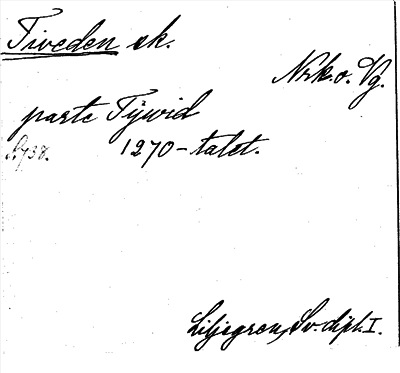 Tiveden sk.
Nrk. o. Vg.
parte Tÿwid
s. 738. 1270-talet.
Liljegren, Sv. dipl. I.